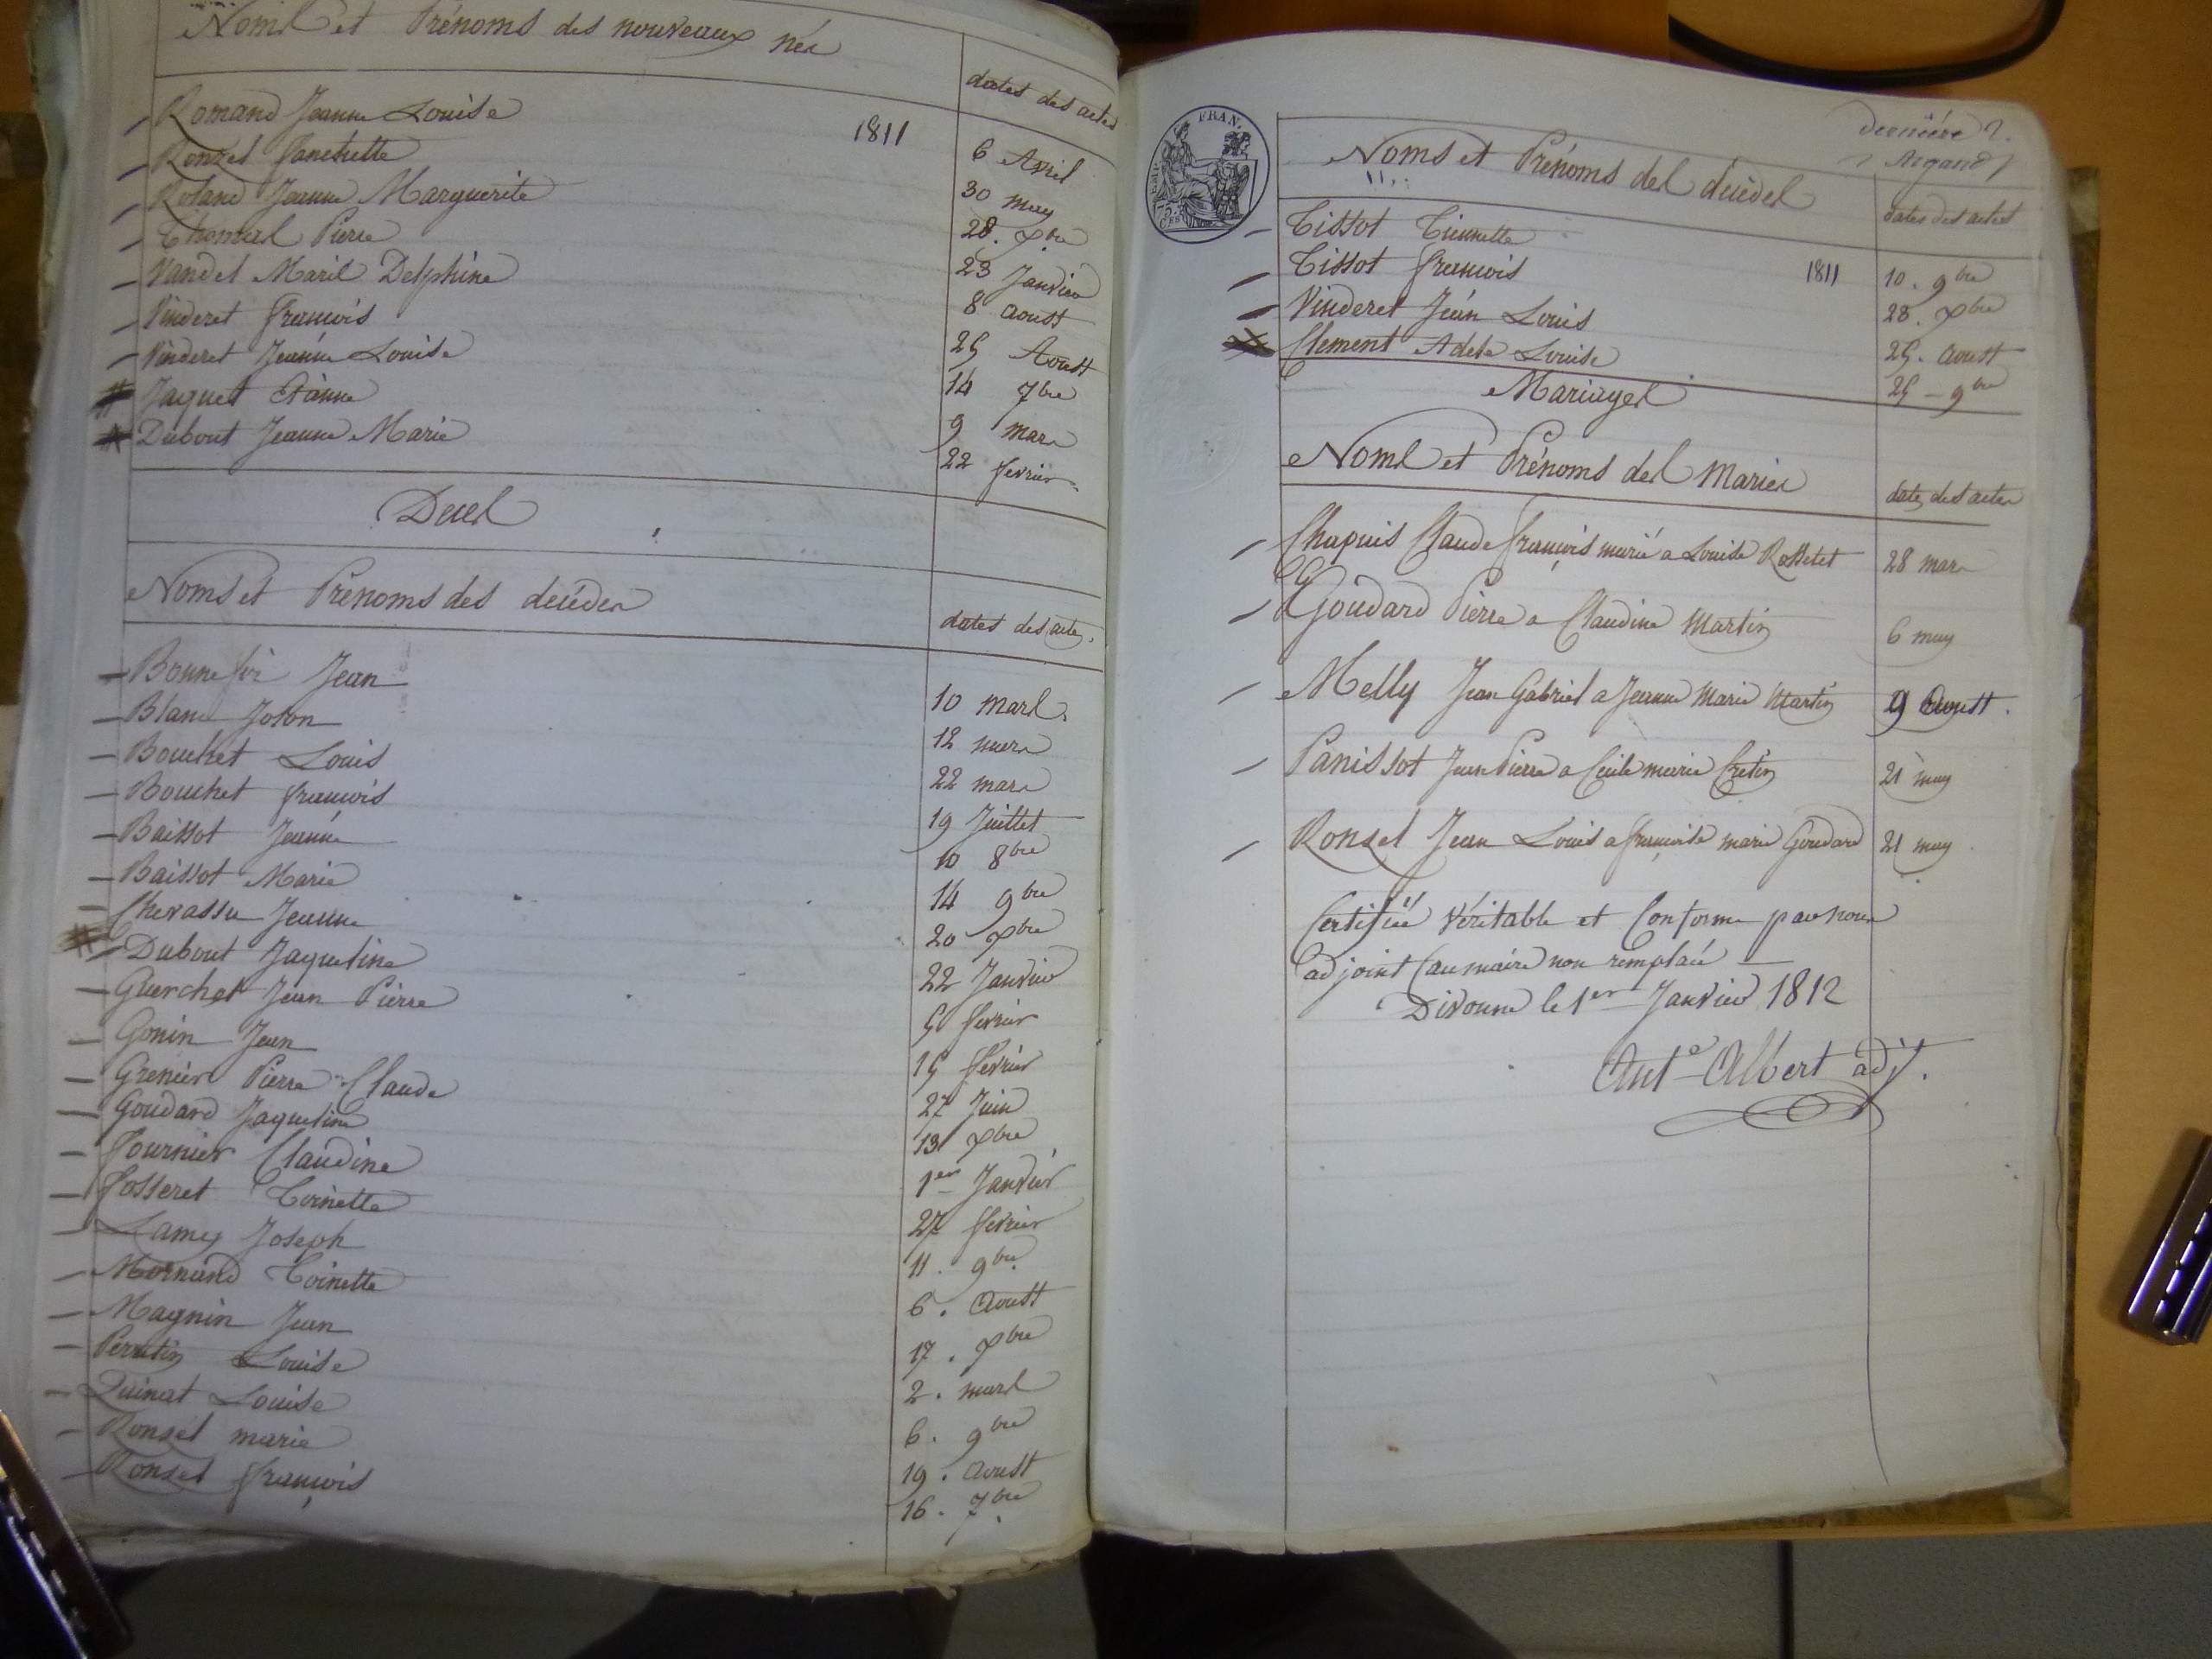 Noms et Prénoms des nouveaux nés
dates des actes
Romand Jeanne Louise 1811 6 Avril
Ronzel Fanchette 30 may
Roland Jeanne Marguerite 28. xbre
Thomas Pierre 23 Janvier
Vandel Marie Delphine 8 Aoust
Vinderet François 25 Aoust
Vinderet Jeanne Louise 14 7bre
Jaquet 9 mars
Dubout Jeanne Marie 22 fevrier
Deces
Noms et Prénoms des décédés dates des actes.
Bonnefoi Jean 10 mars.
Blanc 12 mars
Bouchet Louis 22 mars
Bouchet françois 19 Juillet
Baissot Jeanne 10 8bre
Baissot Marie 14 9bre
Chevassu Jeanne 20 xbre
Dubout Jaqueline 22 Janvier
Guerchet Jean Pierre 5 fevrier
Gonin Jean 15 fevrier
Grenier Pierre Claude 27 Juin
Goudard Jaqueline 13 xbre
Fournier Claudine 1er Janvier
Fosseret Toinette 27 fevrier
Lamy Joseph 11. 9bre.
Mornand Toinette 6. Aoust
Magnin Jean 17. xbre
Perrutin Louise 2. mars
Quinat Louise 6. 9bre
Ronzel marie 19. Aoust
Ronzel françois 16. 7bre.
EMP. FRAN.
dernière
Argand
Noms et Prénoms des décédés
dates des actes
Tissot Tiennette 10. 9bre
Tissot françois 1811 28. xbre
Vinderet Jean Louis 25. Aoust
Clement Adele Louise 25 - 9bre
Mariages
Noms et Prénoms des Mariés dates des actes
Chapuis Claude françois marié a Louise Rosselet 28 mars
Goudard Pierre a Claudine Martin 6 may
Melly Jean Gabriel a Jeanne Marie Martin 9 Aoust.
Panissot Jean Pierre a Cecile marie Cretin 21 may
Ronzel Jean Louis a françoise marie Goudard 21 may.
Certifiée Véritable et Conforme par nous
adjoint au maire non remplacé
Divonne le 1er Janvier 1812
Ante Albert adjt.